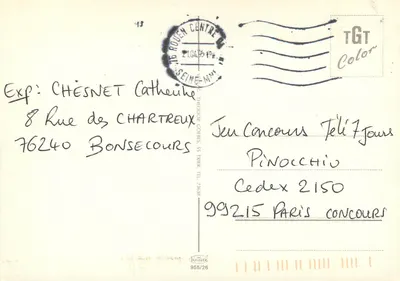 13
76 ROUEN CENTRE
SEINE-MME
TGT
Color
Exp: CHESNET Catherine
8 Rue des CHARTREUX
76240 BONSECOURS
Jeu Concours Télé 7 Jours
PINOCCHIO
Cedex 2150
99215 PARIS CONCOURS